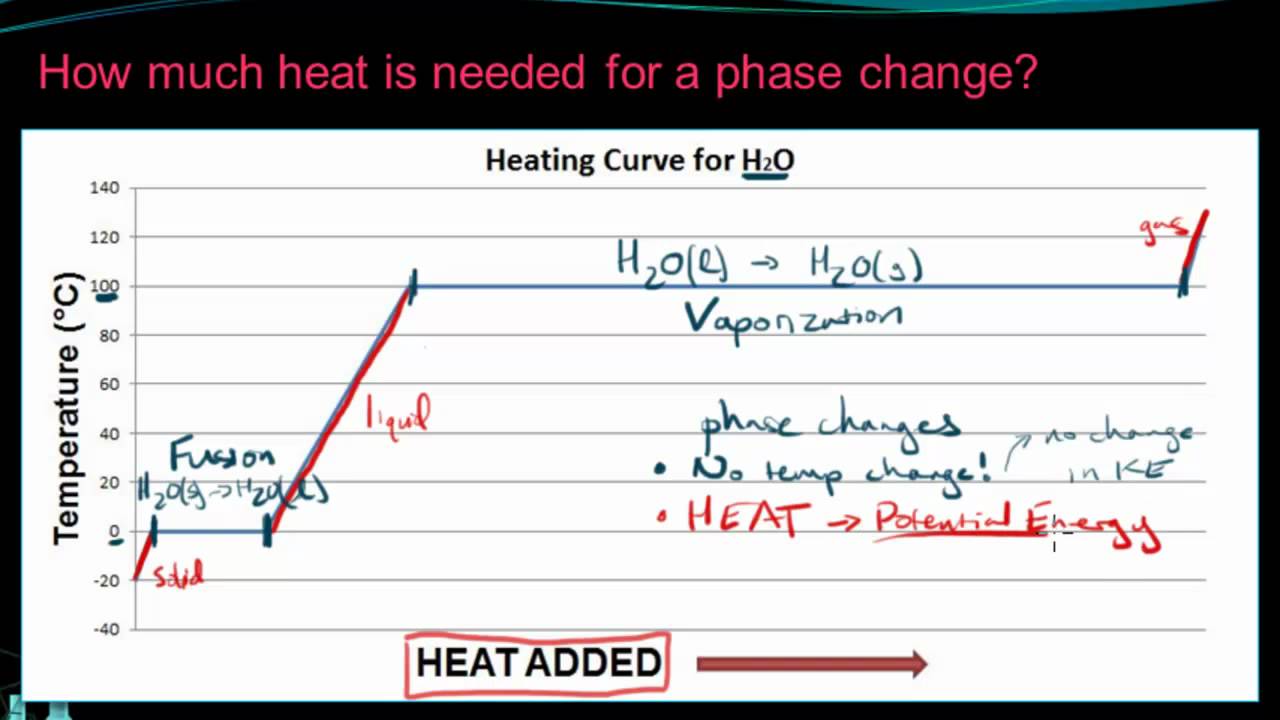 How much heat is needed for a phase change?
Heating Curve for H2O
Temperature (°C)
140
120
100
80
60
40
20
0
-20
-40
gas
H2O(l) → H2O(g)
Vaporization
liquid
Fusion
H2O(s) → H2O(l)
solid
phase changes
• No temp change!
no change
in KE
• HEAT → Potential Energy
HEAT ADDED